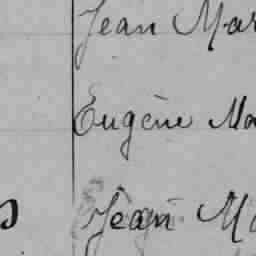 Jean Mar
Eugène Ma
Jean Ma